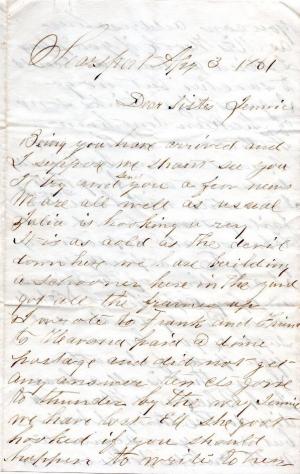 Searsport Apr 3 1861
Dear Sister Jennie
Being you have arrived and
I suppose we shant see you
I try and send you a few news
We are all well as usual
Julia is hooking a rug
It is as cold as the devil
down here we are building
a schooner here in the yard
got all the frames up
I wrote to Frank and
and paid 1 dime
postage and did not get
any answer ten cts gone
to thunder by the way Jennie
we have lost Ed she got
hooked if you should
happen to write to him